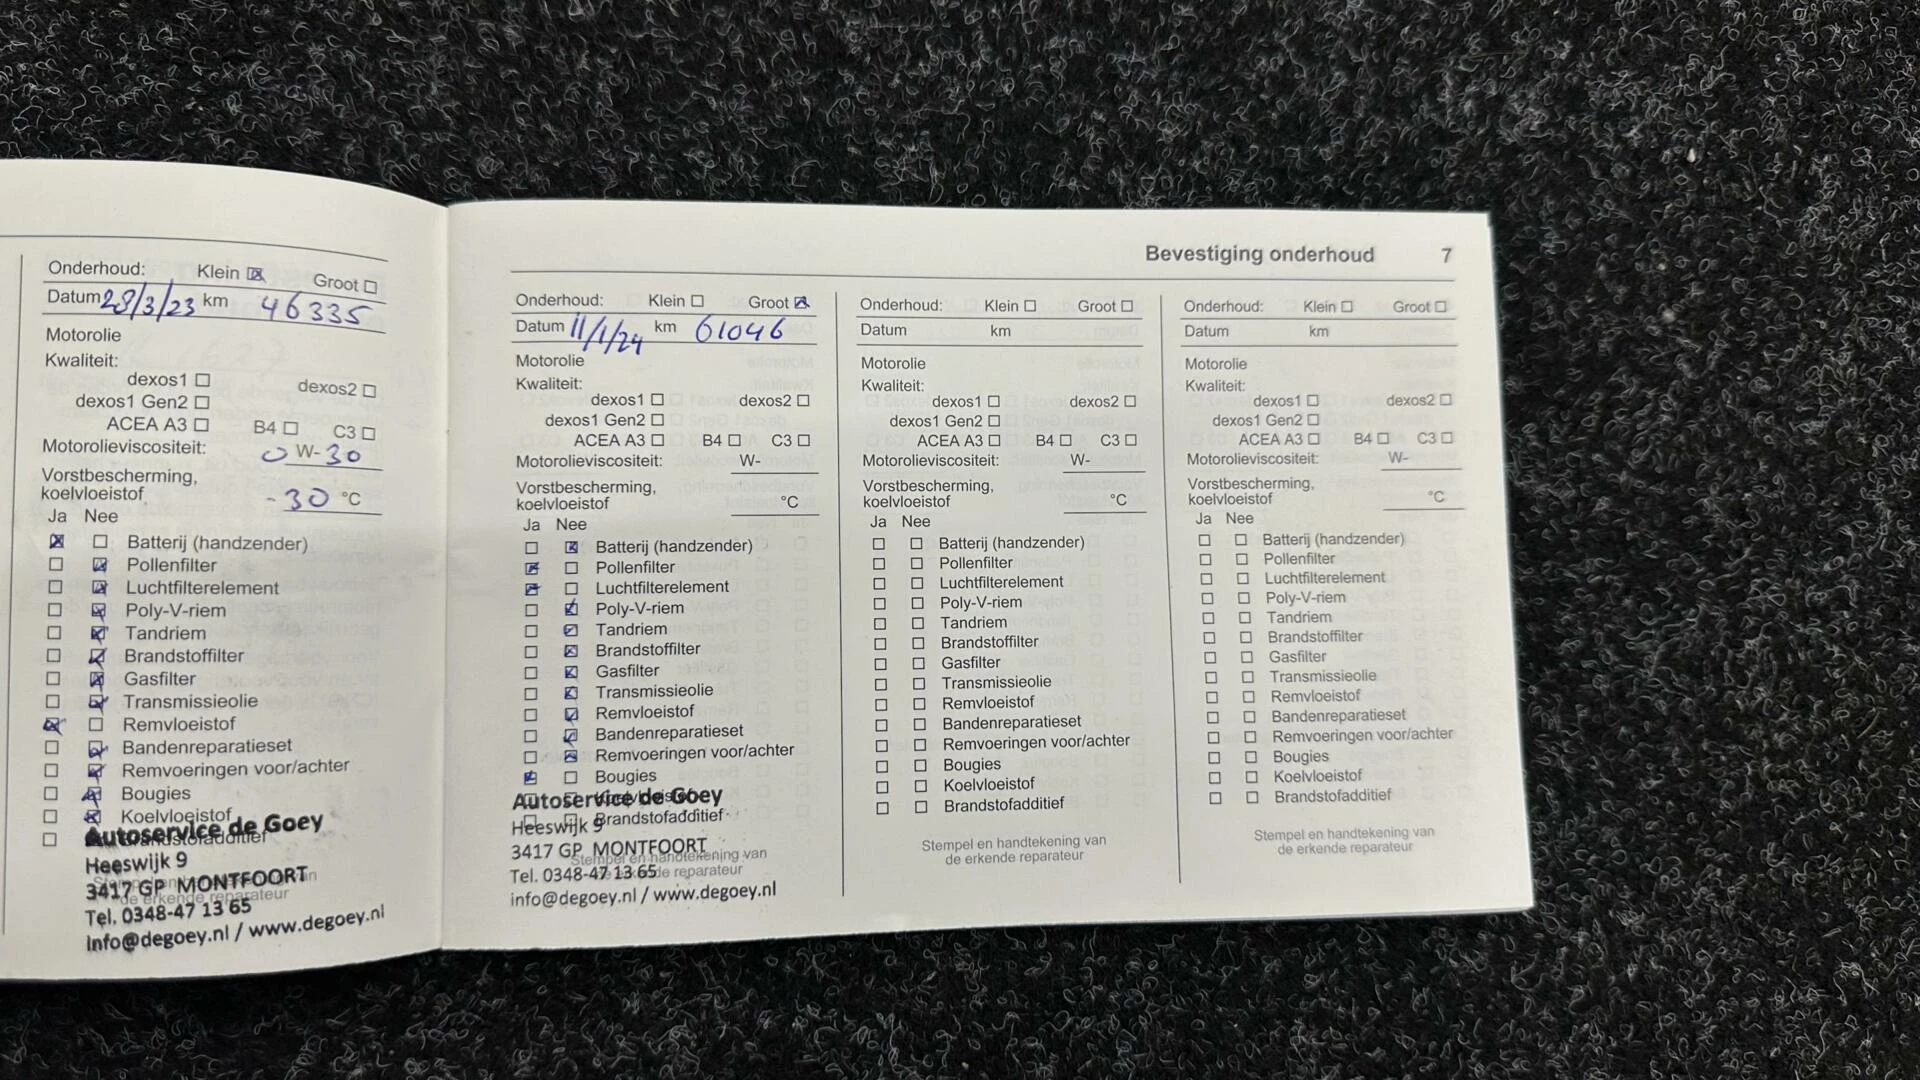 Onderhoud: Klein Groot
Datum 28/3/23 km 46335
Motorolie
Kwaliteit:
dexos1 dexos2
dexos1 Gen2
ACEA A3 B4 C3
Motorolieviscositeit: 0 W-30
Vorstbescherming,
koelvloeistof -30 °C
Ja Nee
Batterij (handzender)
Pollenfilter
Luchtfilterelement
Poly-V-riem
Tandriem
Brandstoffilter
Gasfilter
Transmissieolie
Remvloeistof
Bandenreparatieset
Remvoeringen voor/achter
Bougies
Koelvloeistof
Brandstofadditief
Autoservice de Goey
Heeswijk 9
3417 GP MONTFOORT
Tel. 0348-47 13 65
Info@degoey.nl / www.degoey.nl
de erkende reparateur
Bevestiging onderhoud 7
Onderhoud: Klein Groot
Datum 11/1/24 km 61046
Motorolie
Kwaliteit:
dexos1 dexos2
dexos1 Gen2
ACEA A3 B4 C3
Motorolieviscositeit: W-
Vorstbescherming,
koelvloeistof °C
Ja Nee
Batterij (handzender)
Pollenfilter
Luchtfilterelement
Poly-V-riem
Tandriem
Brandstoffilter
Gasfilter
Transmissieolie
Remvloeistof
Bandenreparatieset
Remvoeringen voor/achter
Bougies
Koelvloeistof
Brandstofadditief
Autoservice de Goey
Heeswijk 9
3417 GP MONTFOORT
Tel. 0348-47 13 65
info@degoey.nl / www.degoey.nl
Stempel en handtekening van
de erkende reparateur
Onderhoud: Klein Groot
Datum km
Motorolie
Kwaliteit:
dexos1 dexos2
dexos1 Gen2
ACEA A3 B4 C3
Motorolieviscositeit: W-
Vorstbescherming,
koelvloeistof °C
Ja Nee
Batterij (handzender)
Pollenfilter
Luchtfilterelement
Poly-V-riem
Tandriem
Brandstoffilter
Gasfilter
Transmissieolie
Remvloeistof
Bandenreparatieset
Remvoeringen voor/achter
Bougies
Koelvloeistof
Brandstofadditief
Stempel en handtekening van
de erkende reparateur
Onderhoud: Klein Groot
Datum km
Motorolie
Kwaliteit:
dexos1 dexos2
dexos1 Gen2
ACEA A3 B4 C3
Motorolieviscositeit: W-
Vorstbescherming,
koelvloeistof °C
Ja Nee
Batterij (handzender)
Pollenfilter
Luchtfilterelement
Poly-V-riem
Tandriem
Brandstoffilter
Gasfilter
Transmissieolie
Remvloeistof
Bandenreparatieset
Remvoeringen voor/achter
Bougies
Koelvloeistof
Brandstofadditief
Stempel en handtekening van
de erkende reparateur